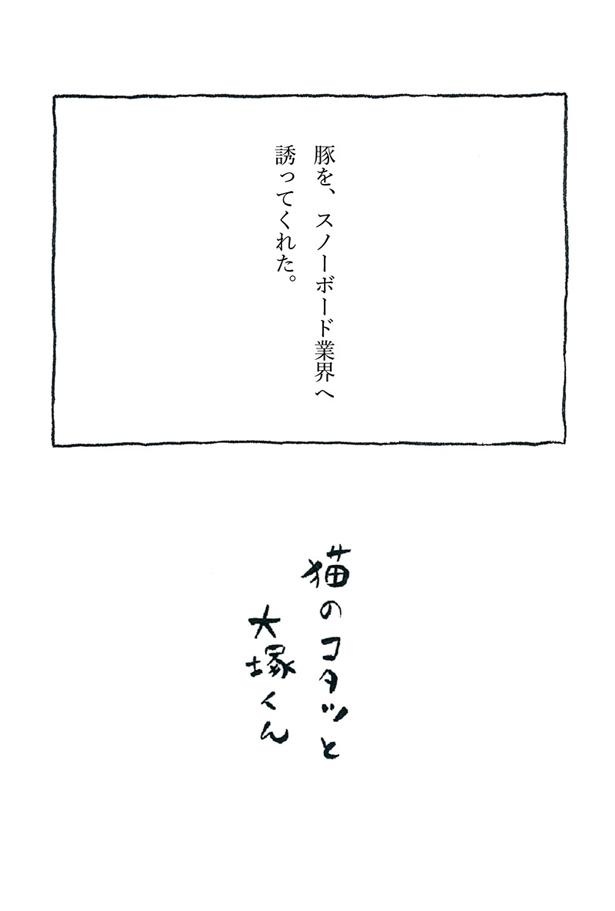 豚を、スノーボード業界へ
誘ってくれた。
猫のコタツと
大塚くん